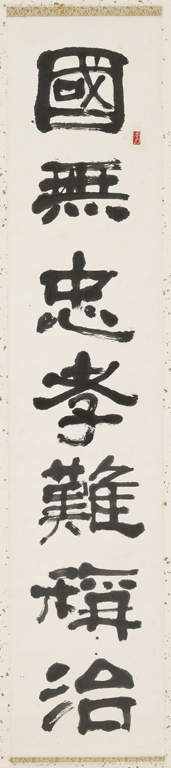 國無忠孝難稱治